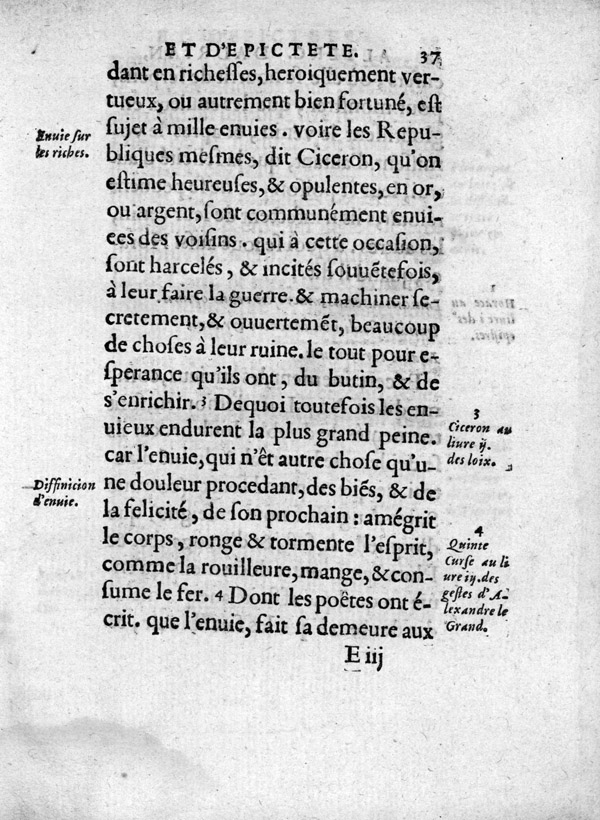 ET D'EPICTETE. 37
dant en richeſſes, heroiquement ver-
tueux, ou autrement bien fortuné, eſt
ſujet à mille enuies. voire les Repu-
bliques meſmes, dit Ciceron, qu'on
eſtime heureuſes, & opulentes, en or,
ou argent, ſont communément enui-
ees des voiſins. qui à cette occaſion,
ſont harcelés, & incités ſouuẽtefois,
à leur faire la guerre. & machiner ſe-
cretement, & ouuertemẽt, beaucoup
de choſes à leur ruine. le tout pour e-
ſperance qu'ils ont, du butin, & de
s'enrichir. 3 Dequoi toutefois les en-
uieux endurent la plus grand peine.
car l'enuie, qui n'êt autre choſe qu'u-
ne douleur procedant, des biẽs, & de
la felicité, de ſon prochain: amégrit
le corps, ronge & tormente l'eſprit,
comme la rouilleure, mange, & con-
ſume le fer. 4 Dont les poêtes ont é-
crit. que l'enuie, fait ſa demeure aux
E iij
Enuie ſur
les riches.
Diffinicion
d'enuie.
3
Ciceron au
liure ij.
des loix.
4
Quinte
Curſe au li
ure iij. des
geſtes d'A-
lexandre le
Grand.